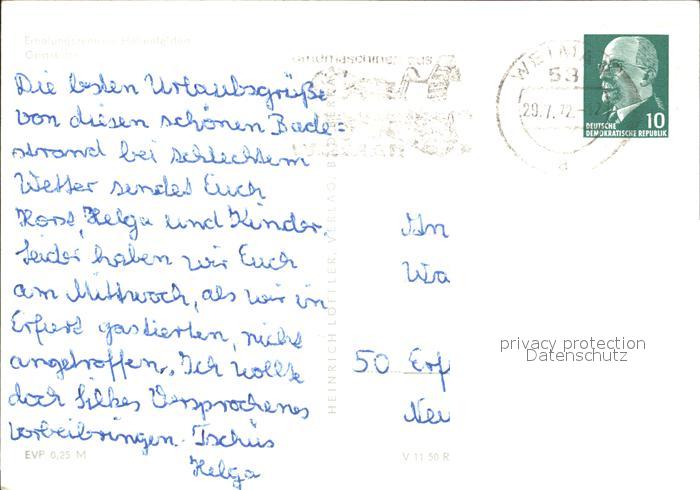 Erholungszentrum Hohenfelden
Die besten Urlaubsgrüße
von diesen schönen Bade=
strand bei schlechtem
Wetter sendet Euch
Horst, Helga und Kinder.
Leider haben wir Euch
am Mittwoch, als wir in
Erfurt gastierten, nicht
angetroffen. Ich wollte
doch Silkes Versprochenes
vorbeibringen. Tschüs
Helga
EVP 0,25 M
HEINRICH LÖFFLER, VERLAG,
V 11 50 R
WEIMAR
53
29.7.72
d
10
DEUTSCHE
DEMOKRATISCHE REPUBLIK
An
Wa
50 Erf
Neu
privacy protection
Datenschutz